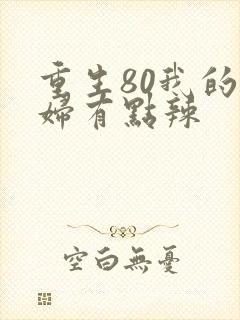 重生80我的
婦有點辣
空白無憂